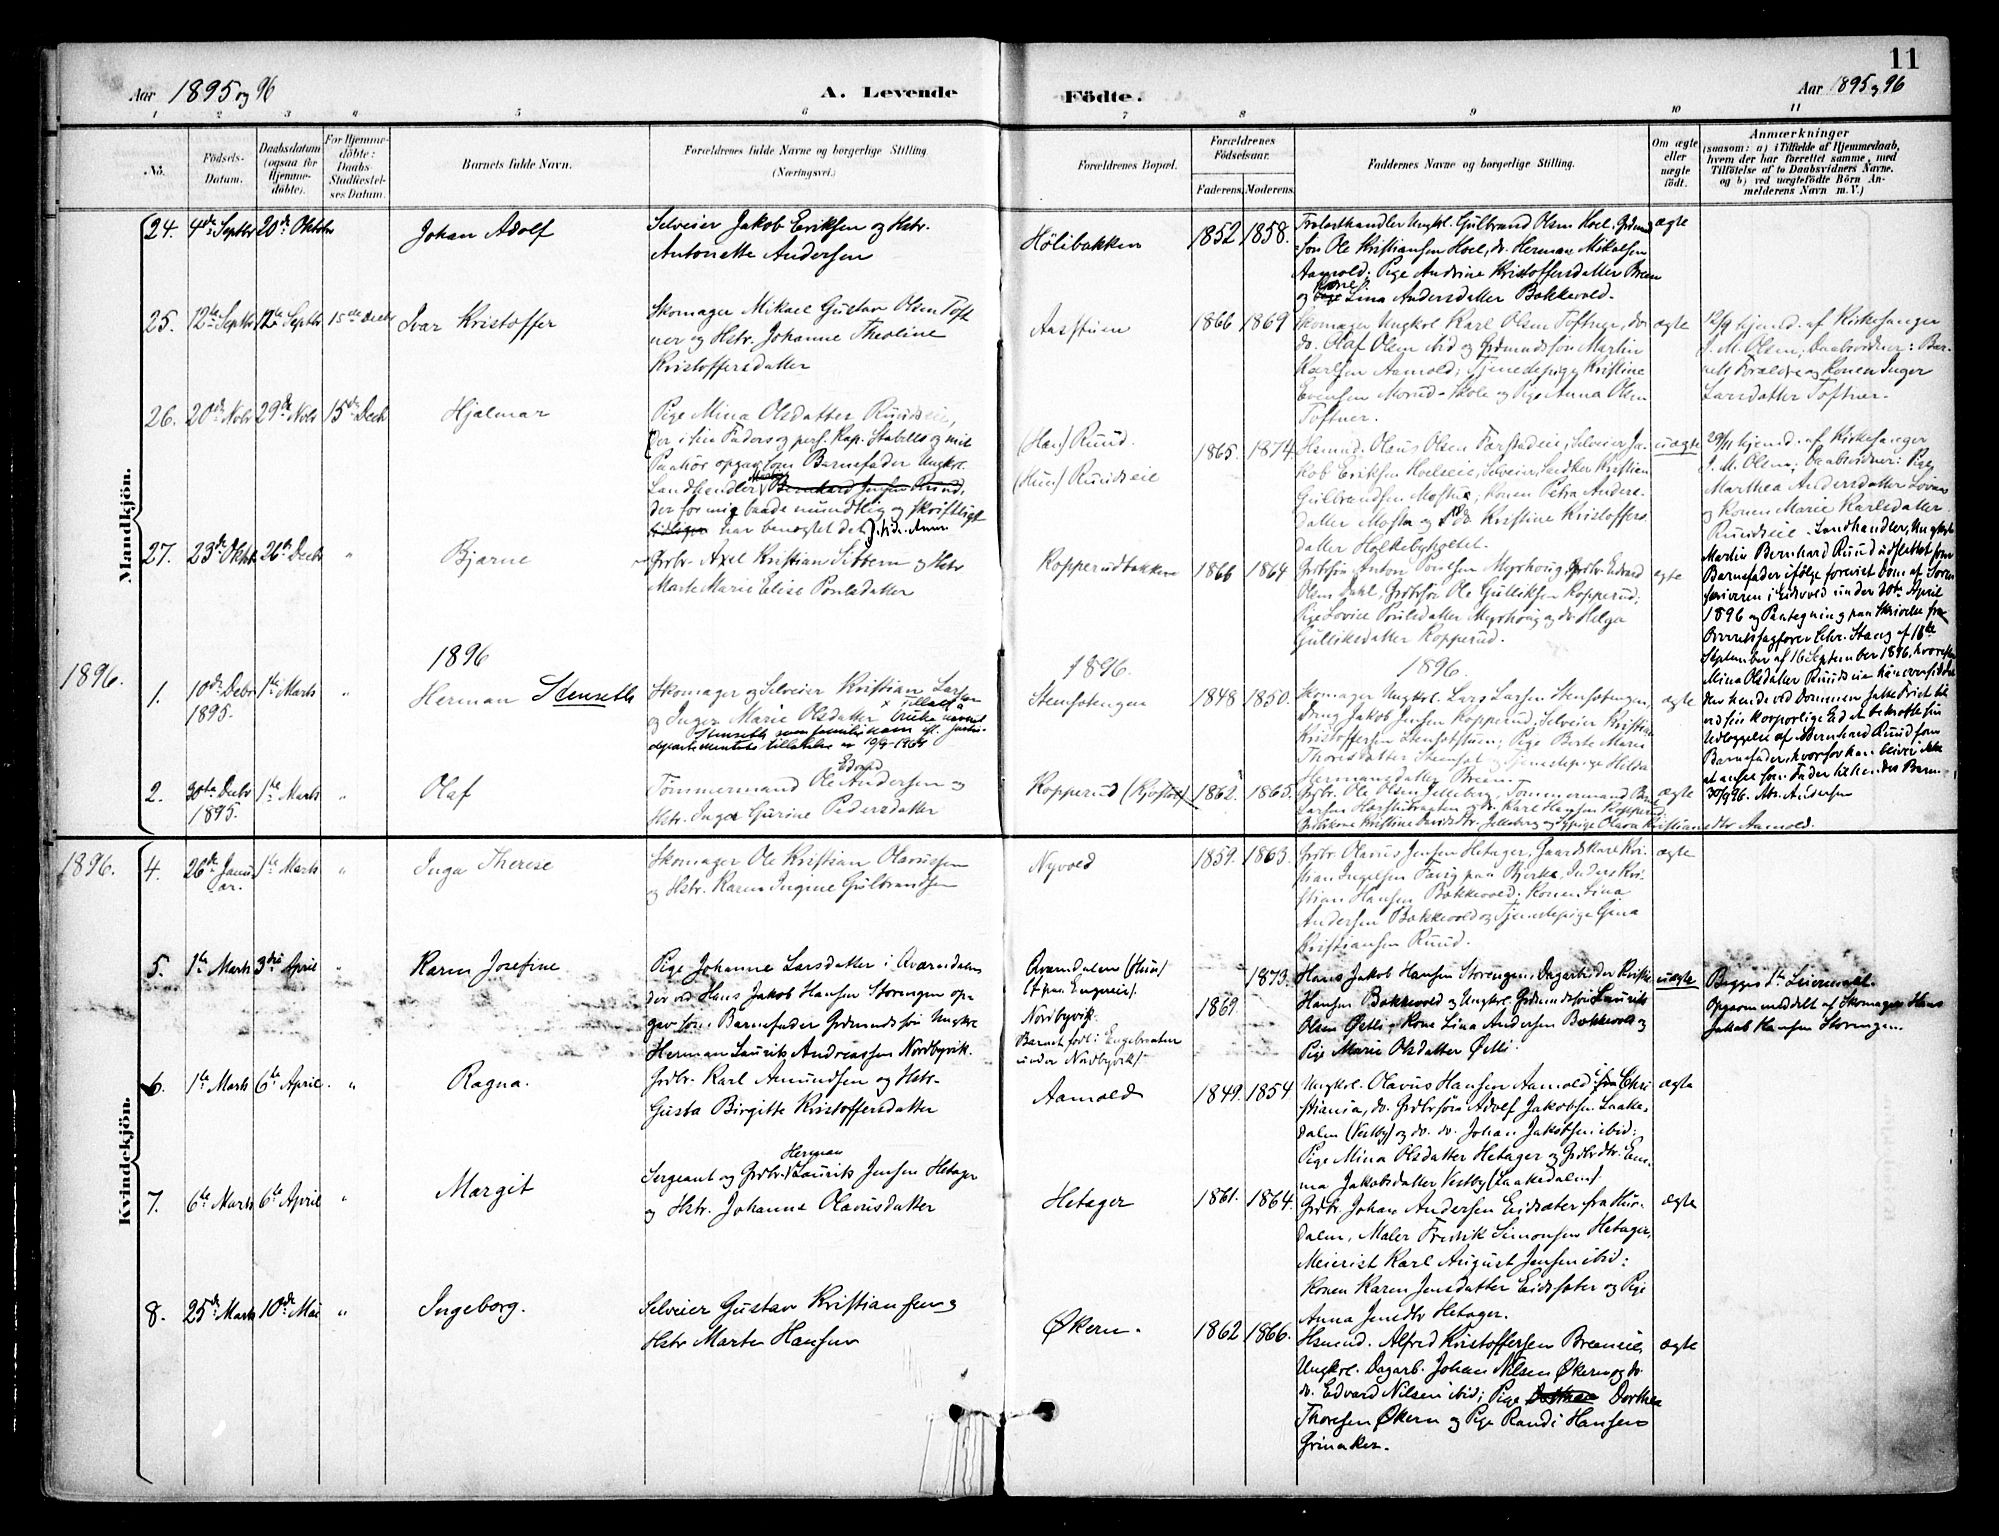 11
Aar 1895 og 96
A. Levende
Födte.
Aar 1895 og 96
1 2 3 4 5 6 7 8 9 10 11
No.
Födsels-
Datum.
Daabsdatum
(ogsaa for
Hjemme-
döbte).
For Hjemme-
döbte:
Daabs-
Stadfæstel-
ses Datum.
Barnets fulde Navn.
Forældrenes fulde Navne og borgerlige Stilling
(Næringsvei.)
Forældrenes Bopæl.
Forældrenes
Födselsaar.
Faderens.
Moderens.
Faddernes Navne og borgerlige Stilling.
Om ægte
eller
uægte
födt.
Anmærkninger
(saasom: a) i Tilfælde af Hjemmedaab,
hvem der har forrettet samme, med
Tilföielse af to Daabsvidners Navne,
og b) ved uægtefödte Börn An-
melderens Navn m. V.)
Mandkjön.
24. 4de Septbr 20de Oktbr
Johan Adolf
Selveier Jakob Eriksen og Hstr.
Antonette Andersen
Hölibakken
1852 1858.
Trælasthandler Ungkl. Gulbrand Olsen Hoel, Grdmand
søn Ole Kristiansen Hoel, do. Herman Mikalsen
Aamold; Pige Andrine Kristoffersdatter Breen
og Kone Lina Andersdatter Bakkevold.
ægte
25. 12te Septbr 12te Septbr 15de Decb
Ivar Kristoffer
Skomager Mikael Gustav Olsen Toft
ner og Hstr. Johanne Theoline
Kristoffersdatter
Aasstuen
1866 1869
Skomager Ungkl Karl Olsen Toftner, do.
do. Olaf Olsen ibid og Grdmandssøn Martin
Karlsen Aamold; Tjenestepige Kristine
Evensen Morud-Skole og Pige Anna Olsen
Toftner.
ægte
12/9 hjemd. af Kirkesanger
J. M. Olsen; Daabsvidner: Bar-
nets Forældre og Konen Inger
Larsdatter Toftner.
26. 20de Novb 29de Novb 15de Decb
Hjalmar
Pige Mina Olsdatter Ruudseie,
der i sin Faders og pers. Kap. Stabells og mit
Paahör opgav som Barnefader Ungkr.
Landhandler Martin Bernhard Jensen Ruud,
der for mig baade mundtlig og skriftligt
har benegtet det.
(Han) Ruud.
(Hun) Ruudseie
1865. 1874
Hsmand. Olaus Olsen Farstadeie, Selveier Ja-
kob Eriksen Hoelseie, Selveier Snedker Kristian
Gulbrandsen Mostue; Konen Petra Anders-
datter Mostu og do Kristine Kristoffers
datter Holkebyholtet.
uægte
29/11 hjemd. af Kirkesanger
J. M. Olsen; Daabsvidner: Pige
Marthea Andersdatter
og Konen Marie Karlsdatter
Ruudseie. Landhandler, Ungkr
Martin Bernhard Ruud udslettet som
Barnefader ifølge forevist Dom af Soren
skriveren i Eidsvold under 20de April
1896 og Paategning paa Skrivelse fra
Overretssagfører Chr. Stang af 18de
September af 16 September 1896, hvorefter
Mina Olsdatter Ruudseie
den hende ved Dommen satte Frist til
ved sin korporlige Ed at bekræfte sin
Udlæggelse af Bernhard Ruud som
Barnefader, hvorfor han bliver ikke
at anse som Fader til hendes Barn.
30/9 96. Abr. Andersen
27. 23de Oktb 26de Decb "
Bjarne
Grdbr. Axel Kristian Sibbern og Hstr
Marte Marie Elise Poulsdatter
Kopperudbakken
1866 1864
Grdbrsön Anton Poulsen Myrhoug, Grdbr. Edvard
Olsen Dahl, Grdbrsön Ole Gulliksen Kopperud;
Pige Lovise Poulsdatter Myrhoug og do. Helga
Gulliksdatter Kopperud.
ægte
1896 1896. 1896.
1896.
1. 10de Decbr 1895. 1ste Marts "
Herman Stenseth
Skomager og Selveier Kristian Larsen
og Inger Marie Olsdatter
x Tillatt å bruke navnet
Stenseth som familienavn efl. Justis-
departementets tillatelse av 19/9 1964
Stensetengen
1848 1850.
Skomager Ungkrl. Lars Larsen Stensetengen,
Dreng Jakob Jensen Kopperud; Selveier Kristian
Kristoffersen Stensetstuen; Pige Berte Marie
Thoresdatter Stenset og Tjenestepige Hilda
Hermansdatter Breen.
ægte
2. 30te Decbr 1895. 1ste Marts "
Olaf
Tömmermand Ole Edvard Andersen og
Hstr. Inger Gurine Pedersdatter
Kopperud
1862. 1865.
Grdbr. Ole Olsen Jelleberg, Tömmermand
Larsen og do. Karl Hansen Kopperud;
ægte
Kvindekjön.
1896.
4. 26de Janu-
ar. 1ste Marts "
Inga Therese
Skomager Ole Kristian Olavussen
og Hstr. Karen Ingine Gulbrandsen
Nyvold
1859. 1863.
Grdbr. Olavus Jensen Hetager, Gaardskarl Kri-
stian Ingelsen Tærig paa Bjerke, Inders Kri-
stian Hansen Bakkevold; Konen Lina
Andersen Bakkevold og Tjenestepige Gina
Kristiansen Ruud.
ægte
5. 1ste Marts 3die April "
Karen Josefine
Pige Johanne Larsdatter i Kværndalen
der ved Hans Jakob Hansen Storengen op-
gav som Barnefader Grdmandssøn Ungkr
Herman Laurits Andreassen Nordbyvik.
Kværndalen (Hun)
Nordbyvik.
Barnet födt i Engebraaten
under Nordbyvik).
1869. 1873.
Hans Jakob Hansen Storengen, Dagarbeider Kristian
Hansen Bakkevold og Ungkrl. Grdmandssøn Laurits
Olsen Ørtli; Kone Lina Andersen Bakkevold og
Pige Marie Olsdatter Ørtli.
uægte
Begges 1ste Leiermaal.
Opgaven meddelt af Skomager Hans
Jakob Hansen Storengen.
6. 1ste Marts 6te April "
Ragna.
Grdbr. Karl Amundsen og Hstr.
Gusta Birgitte Kristoffersdatter
Aamold
1849. 1854.
Ungkrl. Olavus Hansen Aamold i Chri
stiania, do. Grdbrsön Adolf Jakobsen Laake-
dalen (Vestby) og do. do. Johan Jakobsen ibid.;
Pige Mina Olsdatter Hetager og Grdbrdtr. Em-
ma Jakobsdatter Vestby (Laakedalen).
ægte
7. 6te Marts 6te April "
Margit
Sergeant og Grdbr. Herman Laurits Jensen Hetager
og Hstr. Johanne Olavusdatter
Hetager
1861. 1864.
Grdbr. Johan Andersen Eidsæter fra Hur-
dalen, Maler Fredrik Simonsen Hetager,
Meierist Karl August Jensen ibid.:
Konen Karen Jensdatter Eidsæter og Pige
Anna Jensdtr Hetager.
ægte
8. 25de Marts 10de Mai "
Ingeborg.
Selveier Gustav Kristiansen og
Hstr Marte Hansen
Økern.
1862 1866.
Hsmand. Alfred Kristoffersen Breeneie,
Ungkrl. Dagarb. Johan Nilsen Økern og do.
do. Edvard Nilsen ibid; Pige Dorthea
Thoresen Økern og Pige Randi Hansen
Grinaker.
ægte